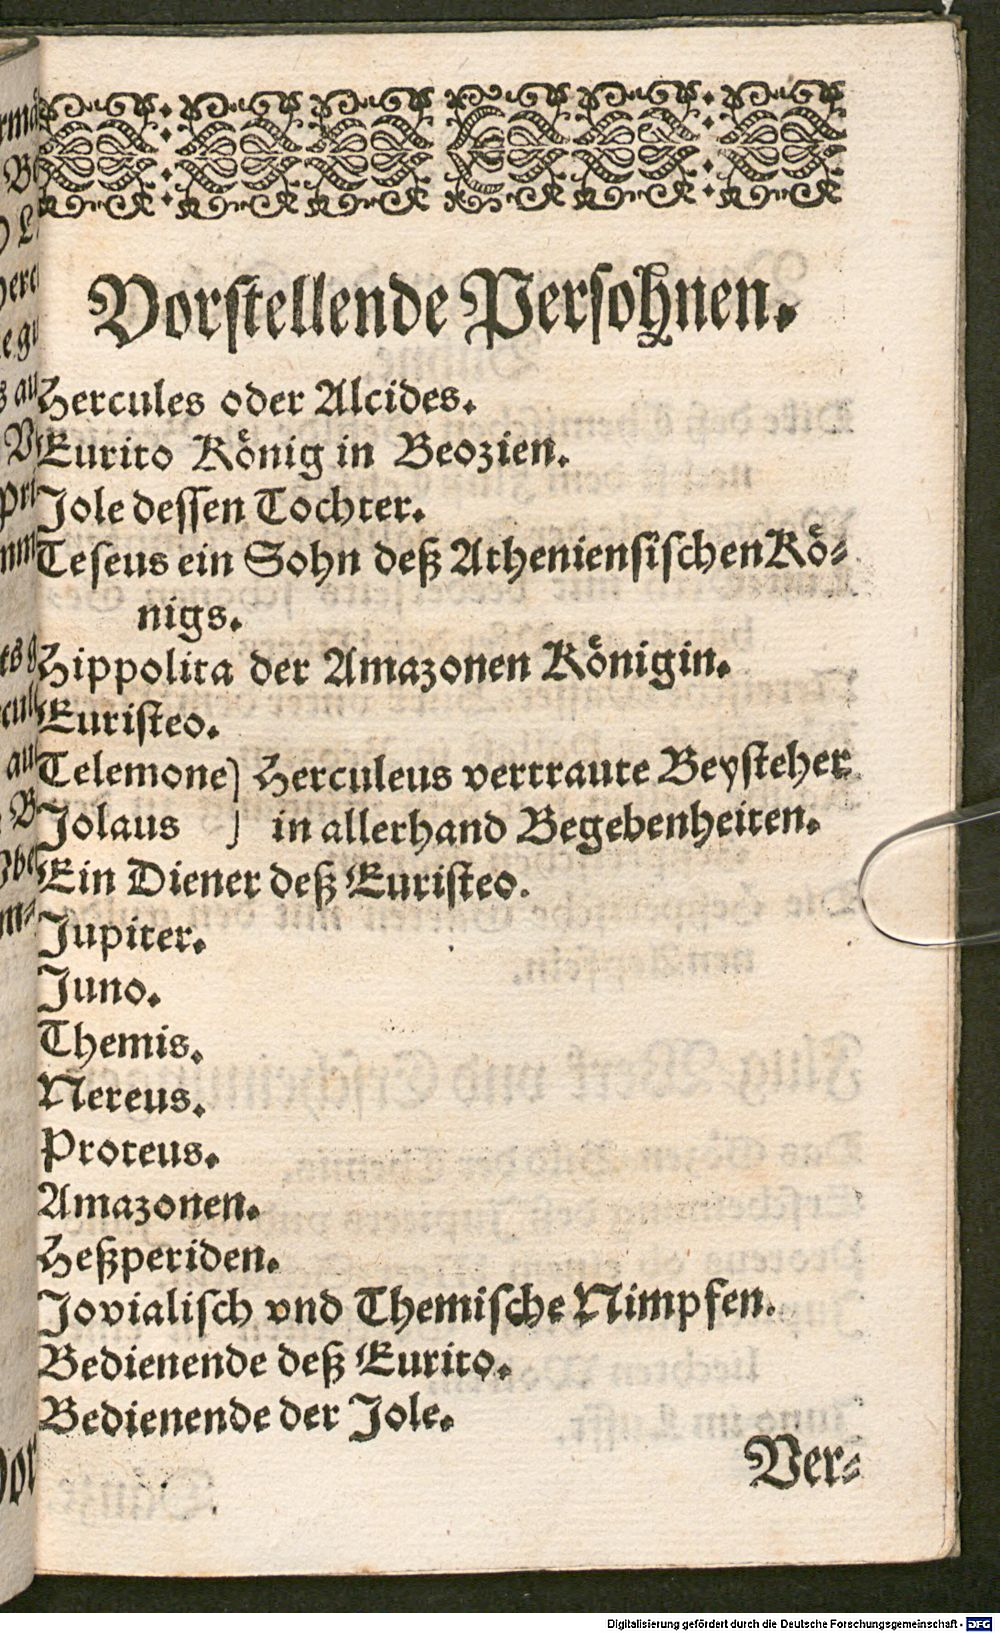 Vorstellende Persohnen.
Hercules oder Alcides.
Eurito König in Beozien.
Jole dessen Tochter.
Teseus ein Sohn deß Atheniensischen Kö-
nigs.
Hippolita der Amazonen Königin.
Euristeo.
Telemone) Herculeus vertraute Beysteher
Jolaus ) in allerhand Begebenheiten.
Ein Diener deß Euristeo.
Jupiter.
Juno.
Themis.
Nereus.
Proteus.
Amazonen.
Heßperiden.
Jovialisch vnd Themische Nimpfen.
Bedienende deß Eurito.
Bedienende der Jole.
Ver-
Digitalisierung gefördert durch die Deutsche Forschungsgemeinschaft - DFG